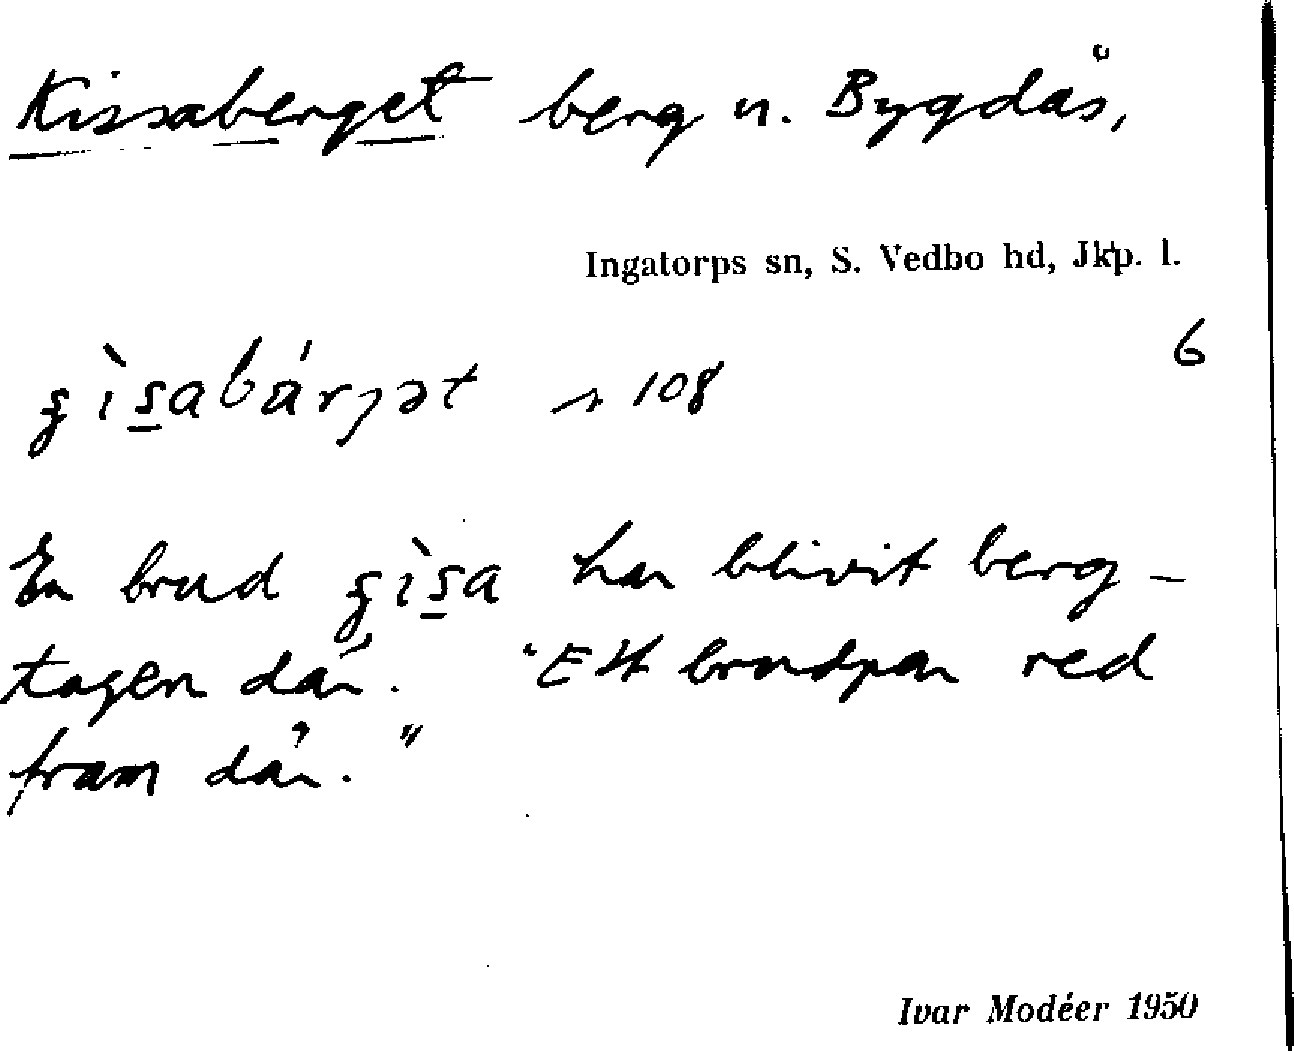 Kissaberget berg n. Bygdås,
Ingatorps sn, S. Vedbo hd, Jkp. l.
6
s 108
En brud har blivit berg-
tagen där. "Ett brudpar red
fram där."
Ivar Modéer 1950